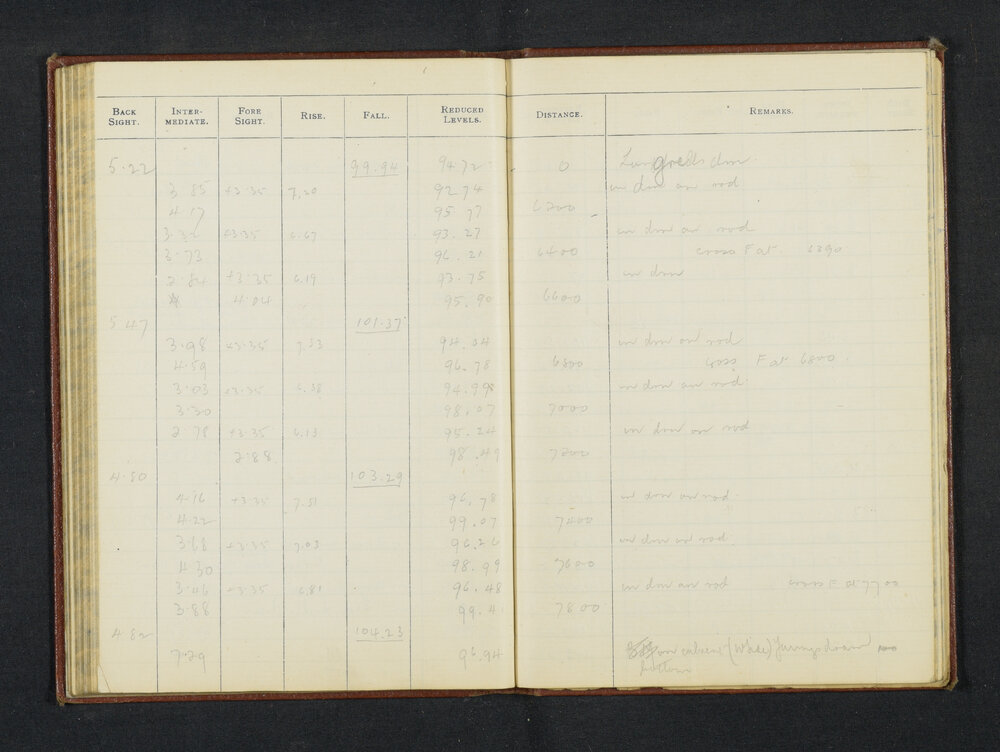 BACK SIGHT. INTER-MEDIATE. FORE SIGHT. RISE. FALL. REDUCED LEVELS. DISTANCE. REMARKS.
5.22 99.94 94.72 0 drn
3.85 +3.35 7.20 92.74 in drn on rod
4.17 95.77 6200
3.32 +3.35 6.67 93.27 in drn on rod
3.73 96.21 6400 cross F at 6390
2.84 +3.35 6.19 93.75 in drn
4.04 95.90 6600
5.47 101.37
3.98 +3.35 7.33 94.04 in drn on rod
4.59 96.78 6800 cross F at 6800
3.03 +3.35 6.38 94.99 in drn on rod
3.30 98.07 7000
2.78 +3.35 6.13 95.24 in drn on rod
2.88 98.49 7200
4.80 103.29
4.16 +3.35 7.51 96.78 in drn on rod
4.22 99.07 7400
3.68 +3.35 7.03 96.26 in drn on rod
4.30 98.99 7600
3.46 +3.35 6.81 96.48 in drn on rod cross F at 7700
3.88 99.41 7800
4.82 104.23
7.29 96.94 on culvert (Wade) drain
bottom